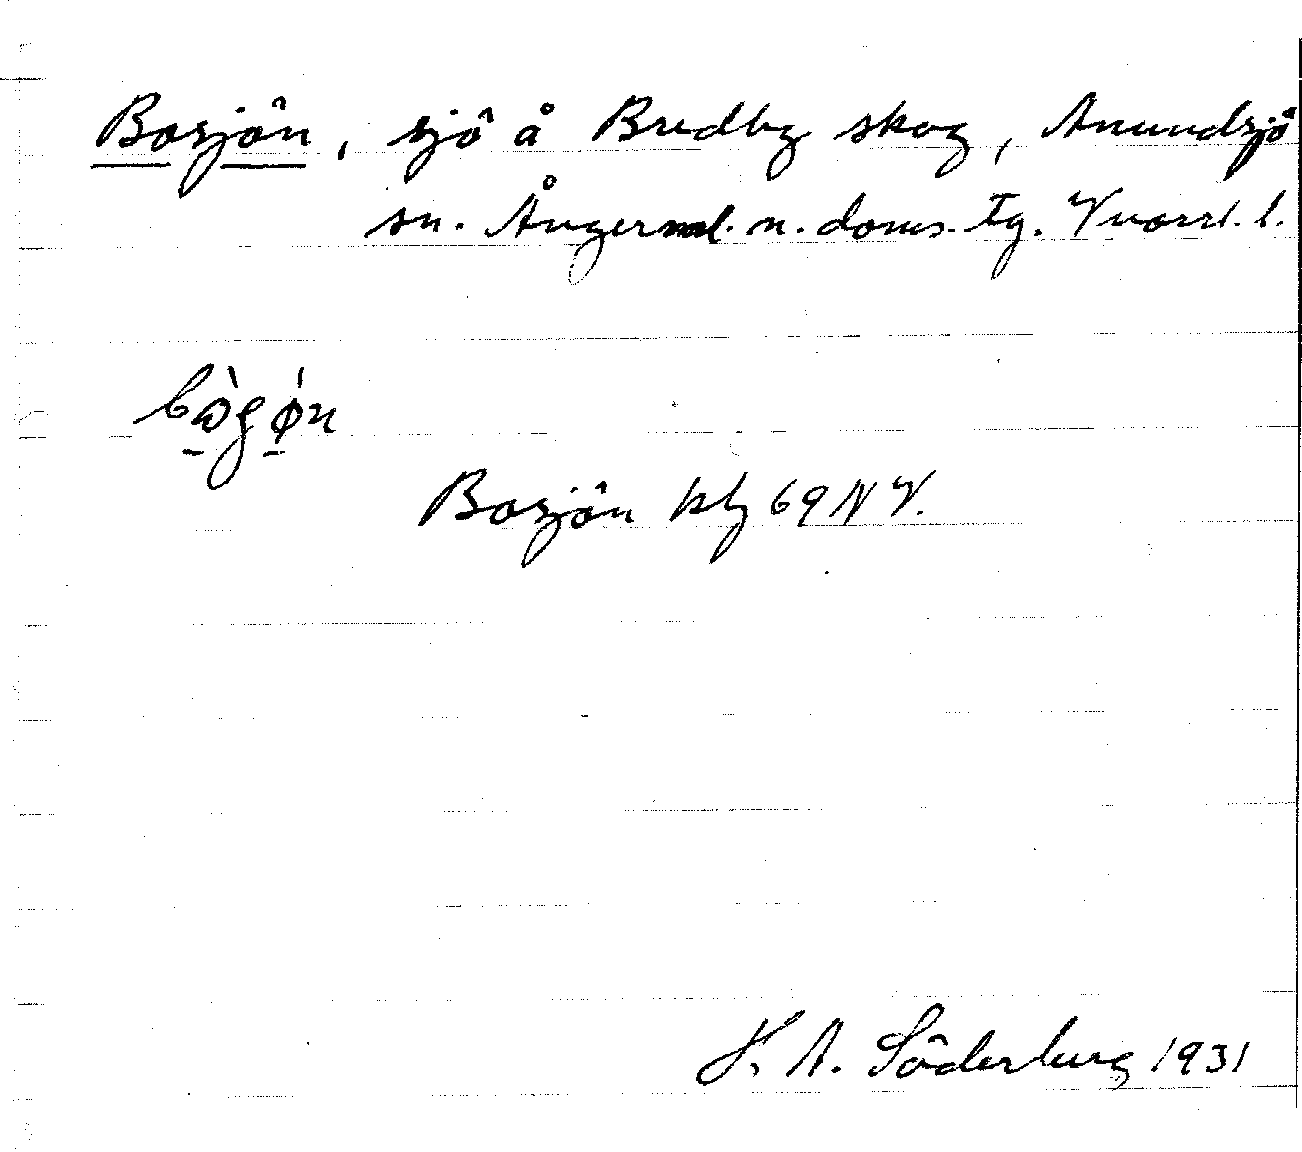 Bosjön, sjö å Bredby skog, Anundsjö
sn. Ångerml. n. doms. tg. Vnorrl. l.
Bosjön kbl 69 NV.
H. A. Söderberg 1931